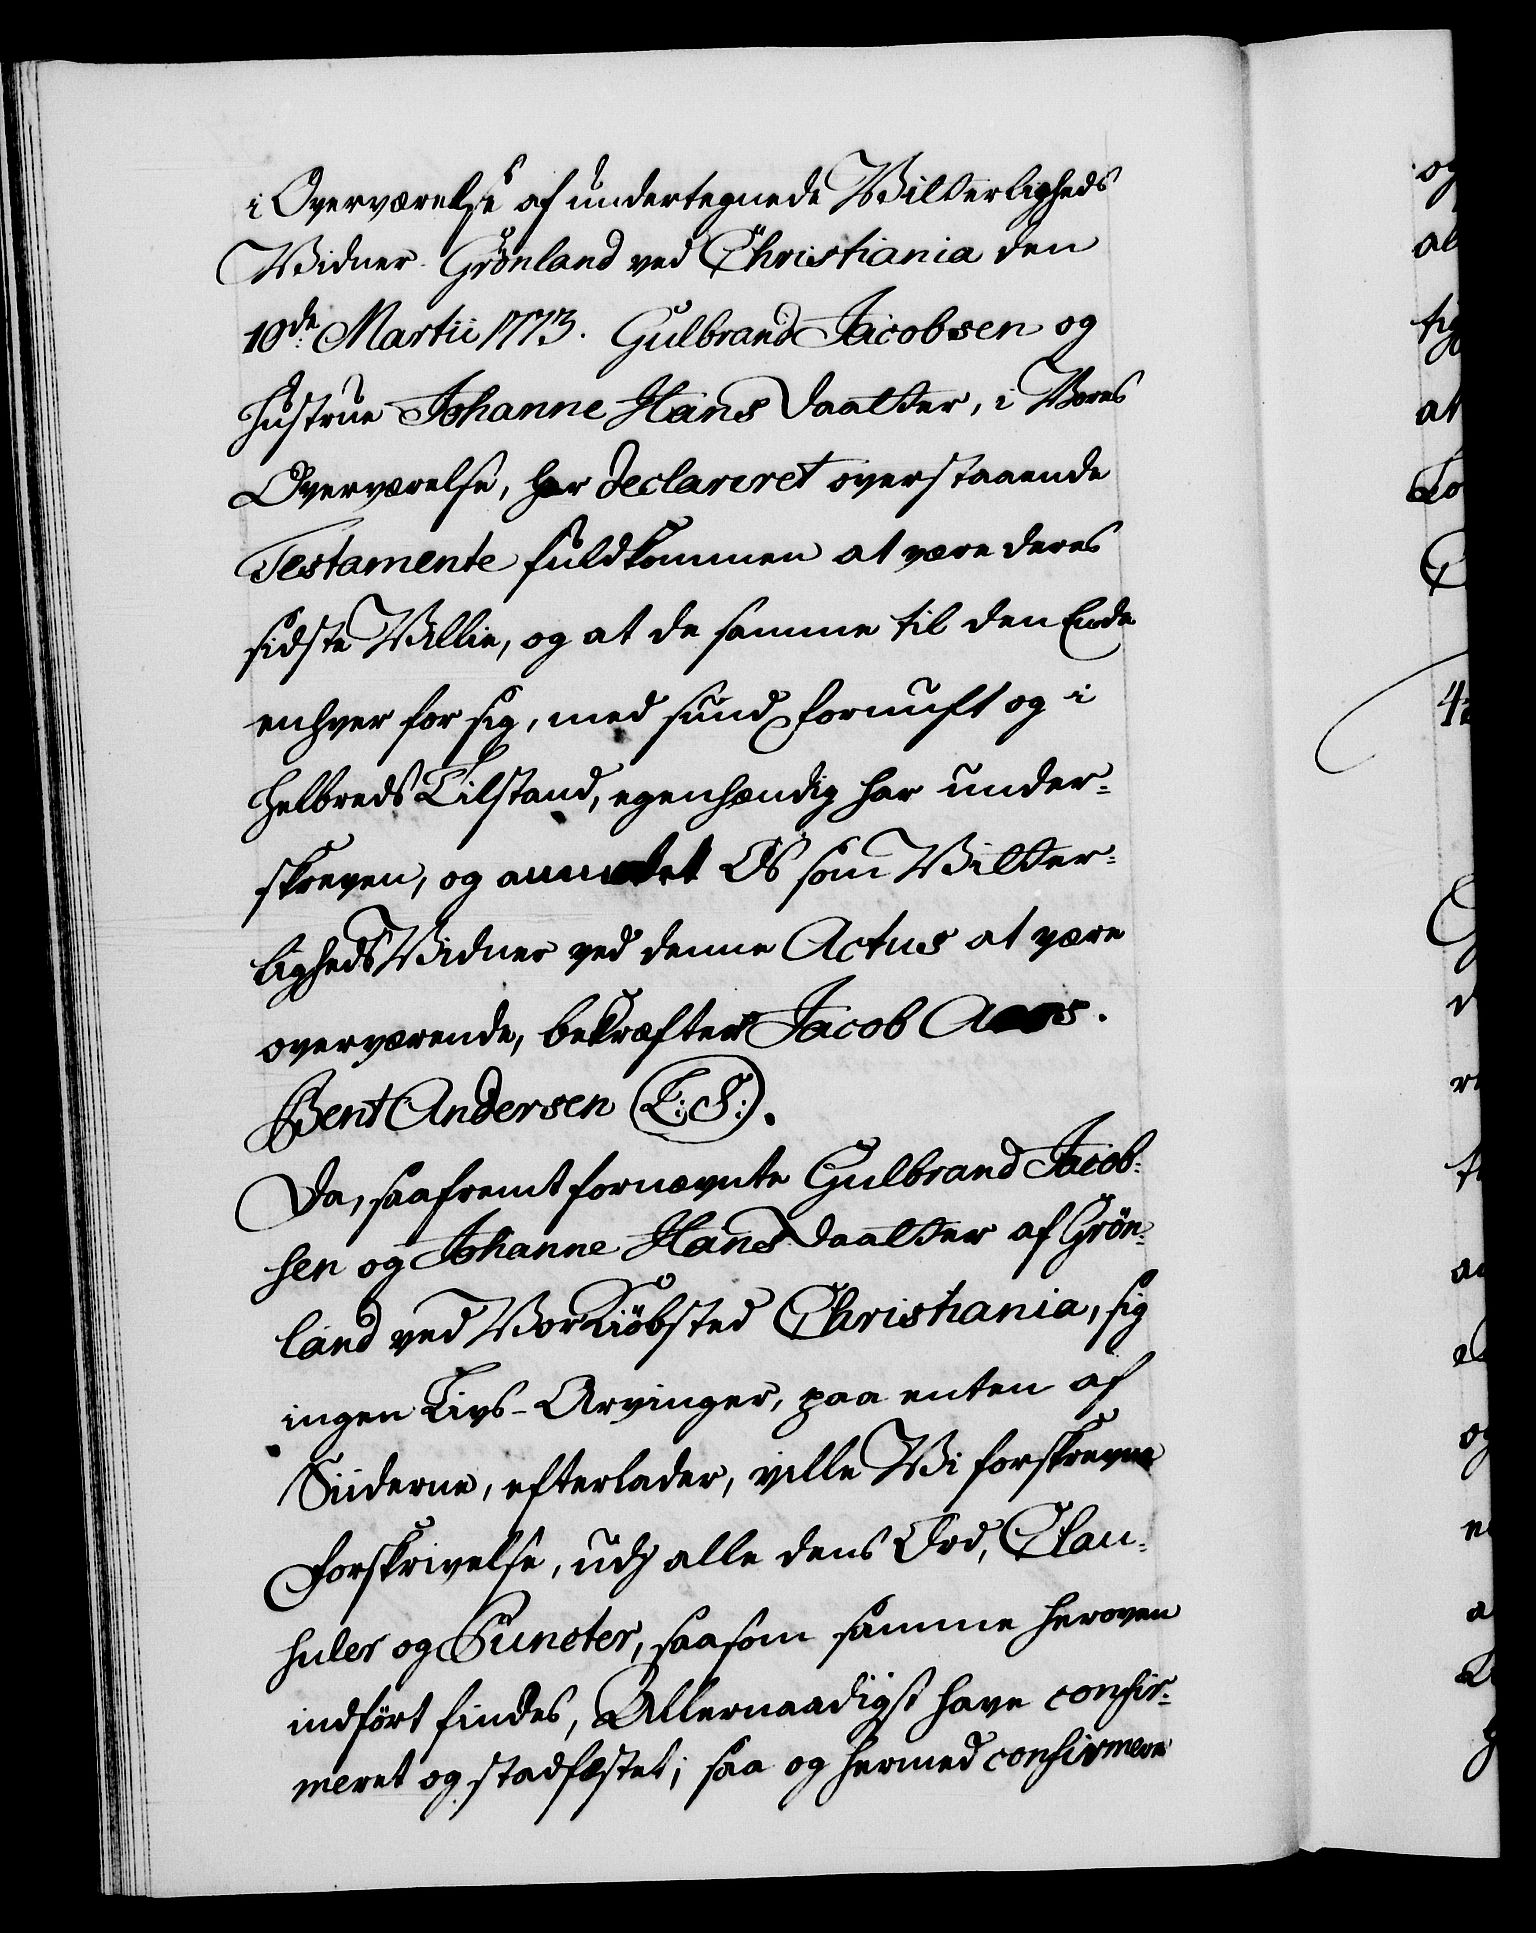 i Overværelse af undertegnede Vitterligheds
Vidner. Grönland ved Christiania den
10de Martii 1773. Gulbrand Jacobsen og
Hustrue Johanne Hans Daatter, i Vores
Overværelse, har declareret overstaaende
Testamente fuldkommen at være deres
sidste Villie, og at de samme til den Ende
enhver for sig, med sund Fornuft og i
Helbreds Tilstand, egenhændig har under-
skreven, og anmodet Os som Vitter-
ligheds Vidner ved denne Actus at være
overværende, bekræfter Jacob
Bent Andersen (L: S:).
Da, saafremt fornævnte Gulbrand Jacob-
sen og Johanne Hans Daatter af Grön-
land ved Vor Kiöbsted Christiania, sig
ingen Livs-Arvinger, paa enten af
Siiderne, efterlader, ville Vi forskrevne
Forskrivelse, udj alle dens Ord, Clau-
suler og Puncter, saasom samme heroven
indført findes, Allernaadigst have confir-
meret og stadfæstet; saa og hermed confirmere